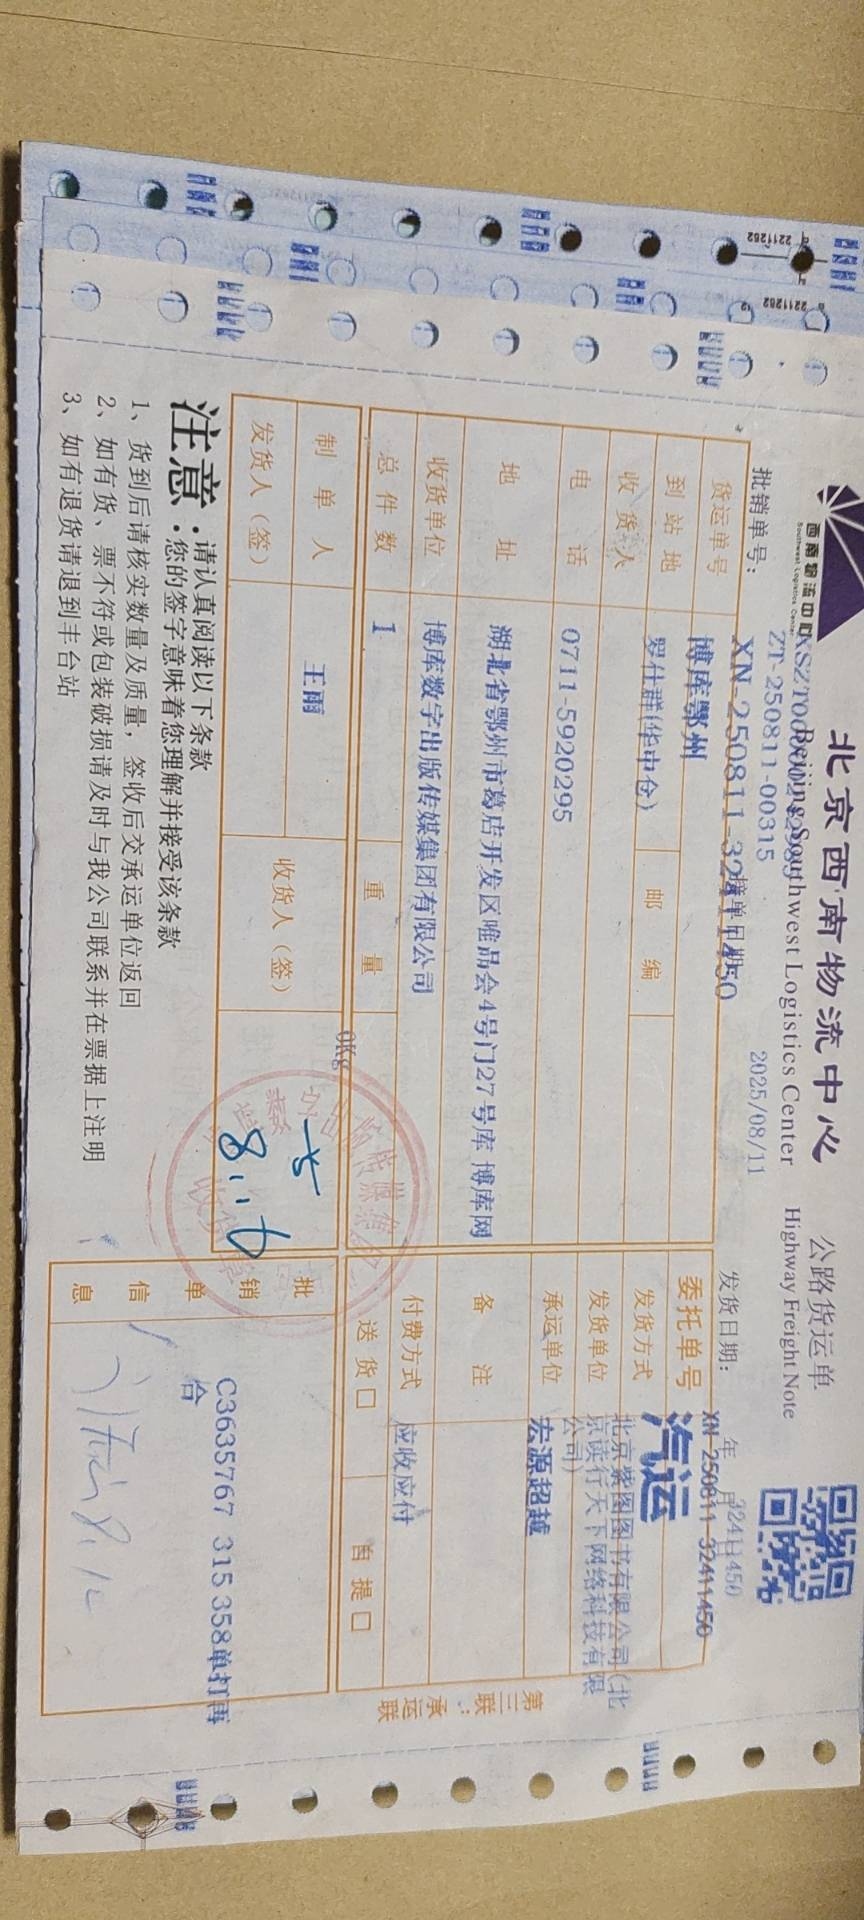 西南物流中心
Southwest Logistics Center
北京西南物流中心 公路货运单
Beijing Southwest Logistics Center Highway Freight Note
批销单号：
ZT-250811-00315
接单日期:
2025/08/11
发货日期: 年 月 日
32411450
货运单号 XN-250811-32411450
委托单号 XN-250811-32411450
到站地 博库鄂州
发货方式 汽运
收货人 罗仕群(华中仓) 邮编
发货单位 北京紫图图书有限公司(北京读行天下网络科技有限公司)
电话 0711-5920295
承运单位 宏源超越
地址 湖北省鄂州市葛店开发区唯品会4号门27号库 博库网
备注
收货单位 博库数字出版传媒集团有限公司
付费方式 应收应付
总件数 1 重量 0Kg
送货□ 自提□
制单人 王雨
发货人（签） 收货人（签）
批销单信息
C3635767 315 358单打再
合
第三联：承运联
注意：请认真阅读以下条款
您的签字意味着您理解并接受该条款
1、货到后请核实数量及质量，签收后交承运单位返回
2、如有货、票不符或包装破损请及时与我公司联系并在票据上注明
3、如有退货请退到丰台站
2211262
2211262